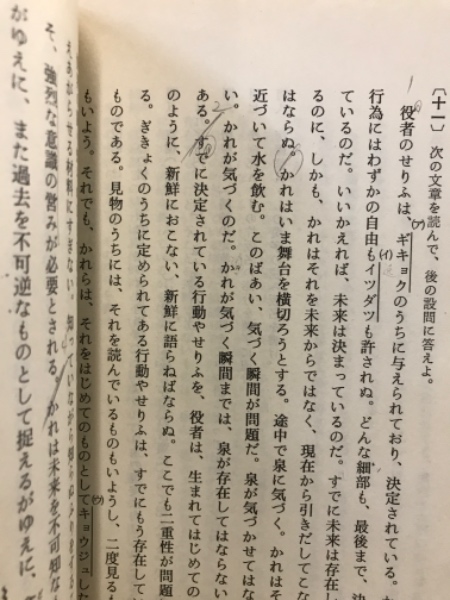 〔十一〕 次の文章を読んで、後の設問に答えよ。
役者のせりふは、ギキョクのうちに与えられており、決定されている。
(ア)
行為にはわずかの自由もイツダツも許されぬ。どんな細部も、最後まで、決
(イ)
ているのだ。いいかえれば、未来は決まっているのだ。すでに未来は存在し
るのに、しかも、かれはそれを未来からではなく、現在から引きだしてこな
はならぬ。かれはいま舞台を横切ろうとする。途中で泉に気づく。かれはそ
近づいて水を飲む。このばあい、気づく瞬間が問題だ。泉が気づかせてはな
い。かれが気づくのだ。かれが気づく瞬間までは、泉が存在してはならない
ある。すでに決定されている行動やせりふを、役者は、生まれてはじめての
のように、新鮮におこない、新鮮に語らねばならぬ。ここでも二重性が問題
る。ぎきょくのうちに定められてある行動やせりふは、すでにもう存在して
ものである。見物のうちには、それを読んでいるものもいようし、二度見る
もいよう。それでも、かれらは、それをはじめてのものとしてキョウジュした
(ウ)
材料にすぎない。
そ、強烈な意識の営みが必要とされる。かれは未来を不可知な
がゆえに、また過去を不可逆なものとして捉えるがゆえに、